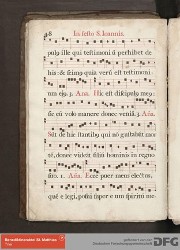 48 In festo S. Ioannis.
puls: ille qui testimonii perhibet de
his: & scimus quia verū est testimoni
um eius. 3. Ana. Hic est discipulus meus:
sic eū volo manere donec veniā. 3 Aña.
Sūt de hic stantibus qui nō gustabūt mor
tē, donec videāt filiū hominis in regno
suo. 1. Aña. Ecce puer meus electus,
quē elegi, posui super eum spiritū me
DFG